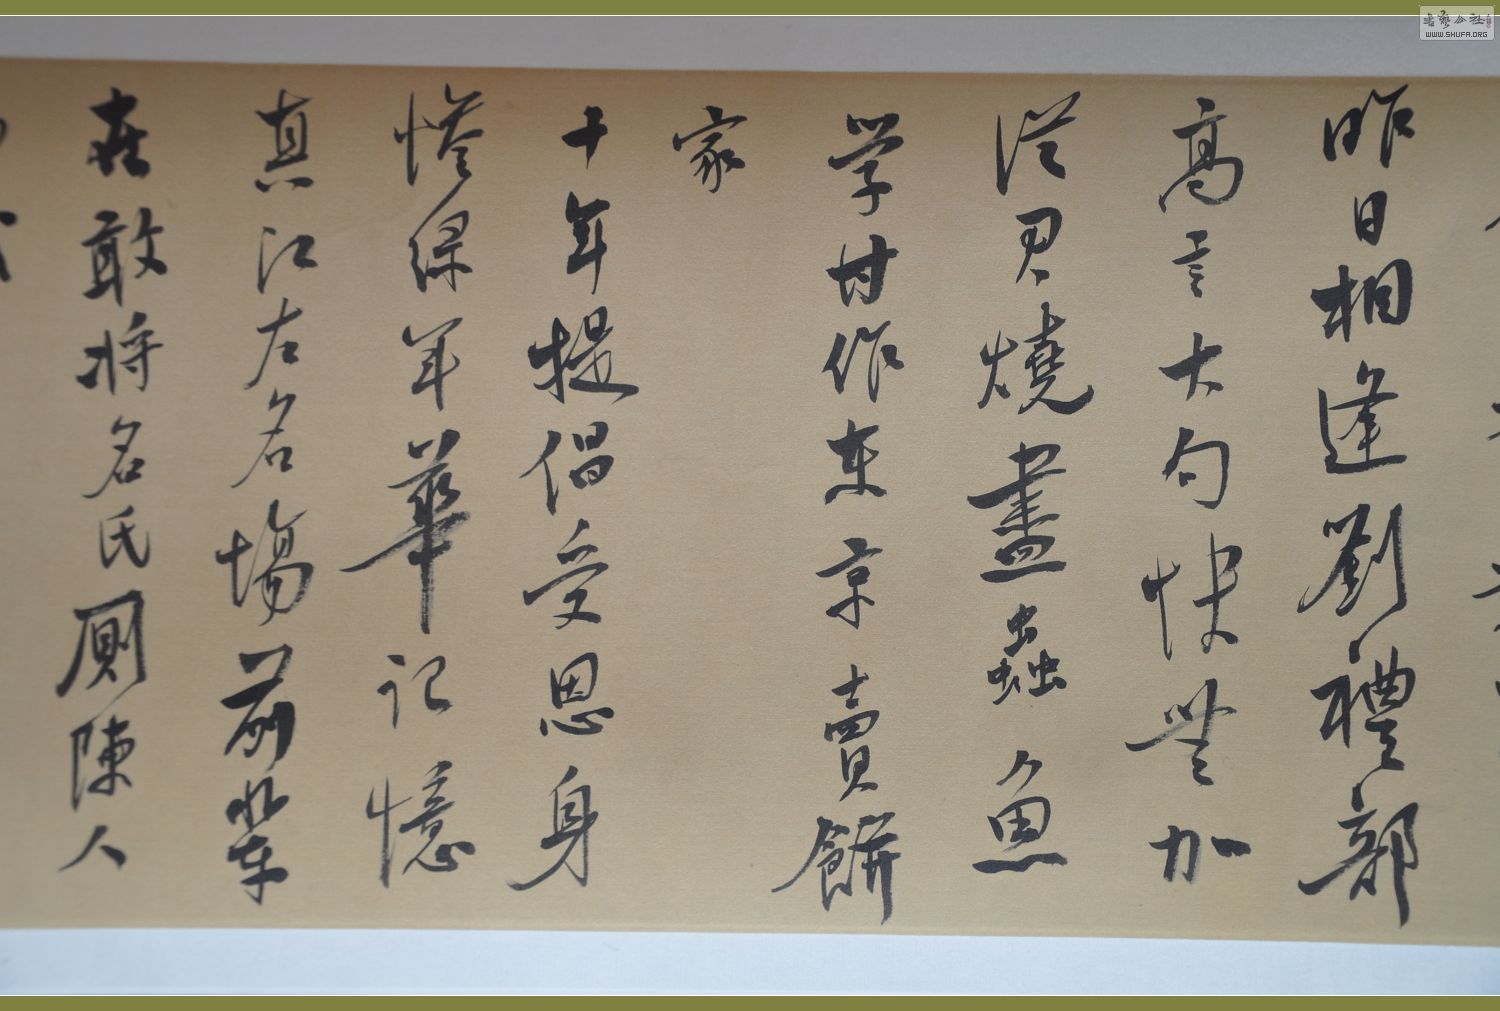 昨日相逢劉禮部
高言大句快無加
從君燒盡蟲魚
学甘作東京賣餅
家
十年提倡受恩身
慘綠年華記憶
真江左名場前輩
在敢将名氏厠陳人
書藝公社
WWW.SHUFA.ORG